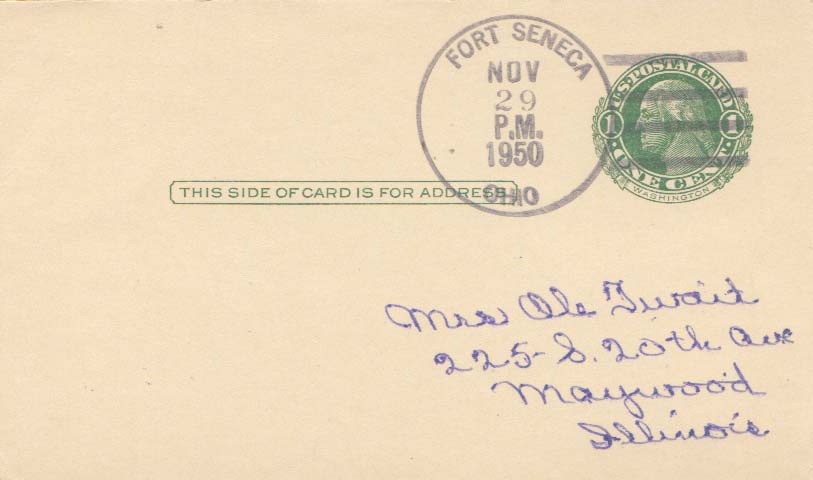 FORT SENECA
NOV
29
P.M.
1950
OHIO
U·S·POSTAL CARD
1 1
·ONE CENT·
WASHINGTON
THIS SIDE OF CARD IS FOR ADDRESS
Mrs Ole
225- S. 20th Ave
Maywood
Illinois